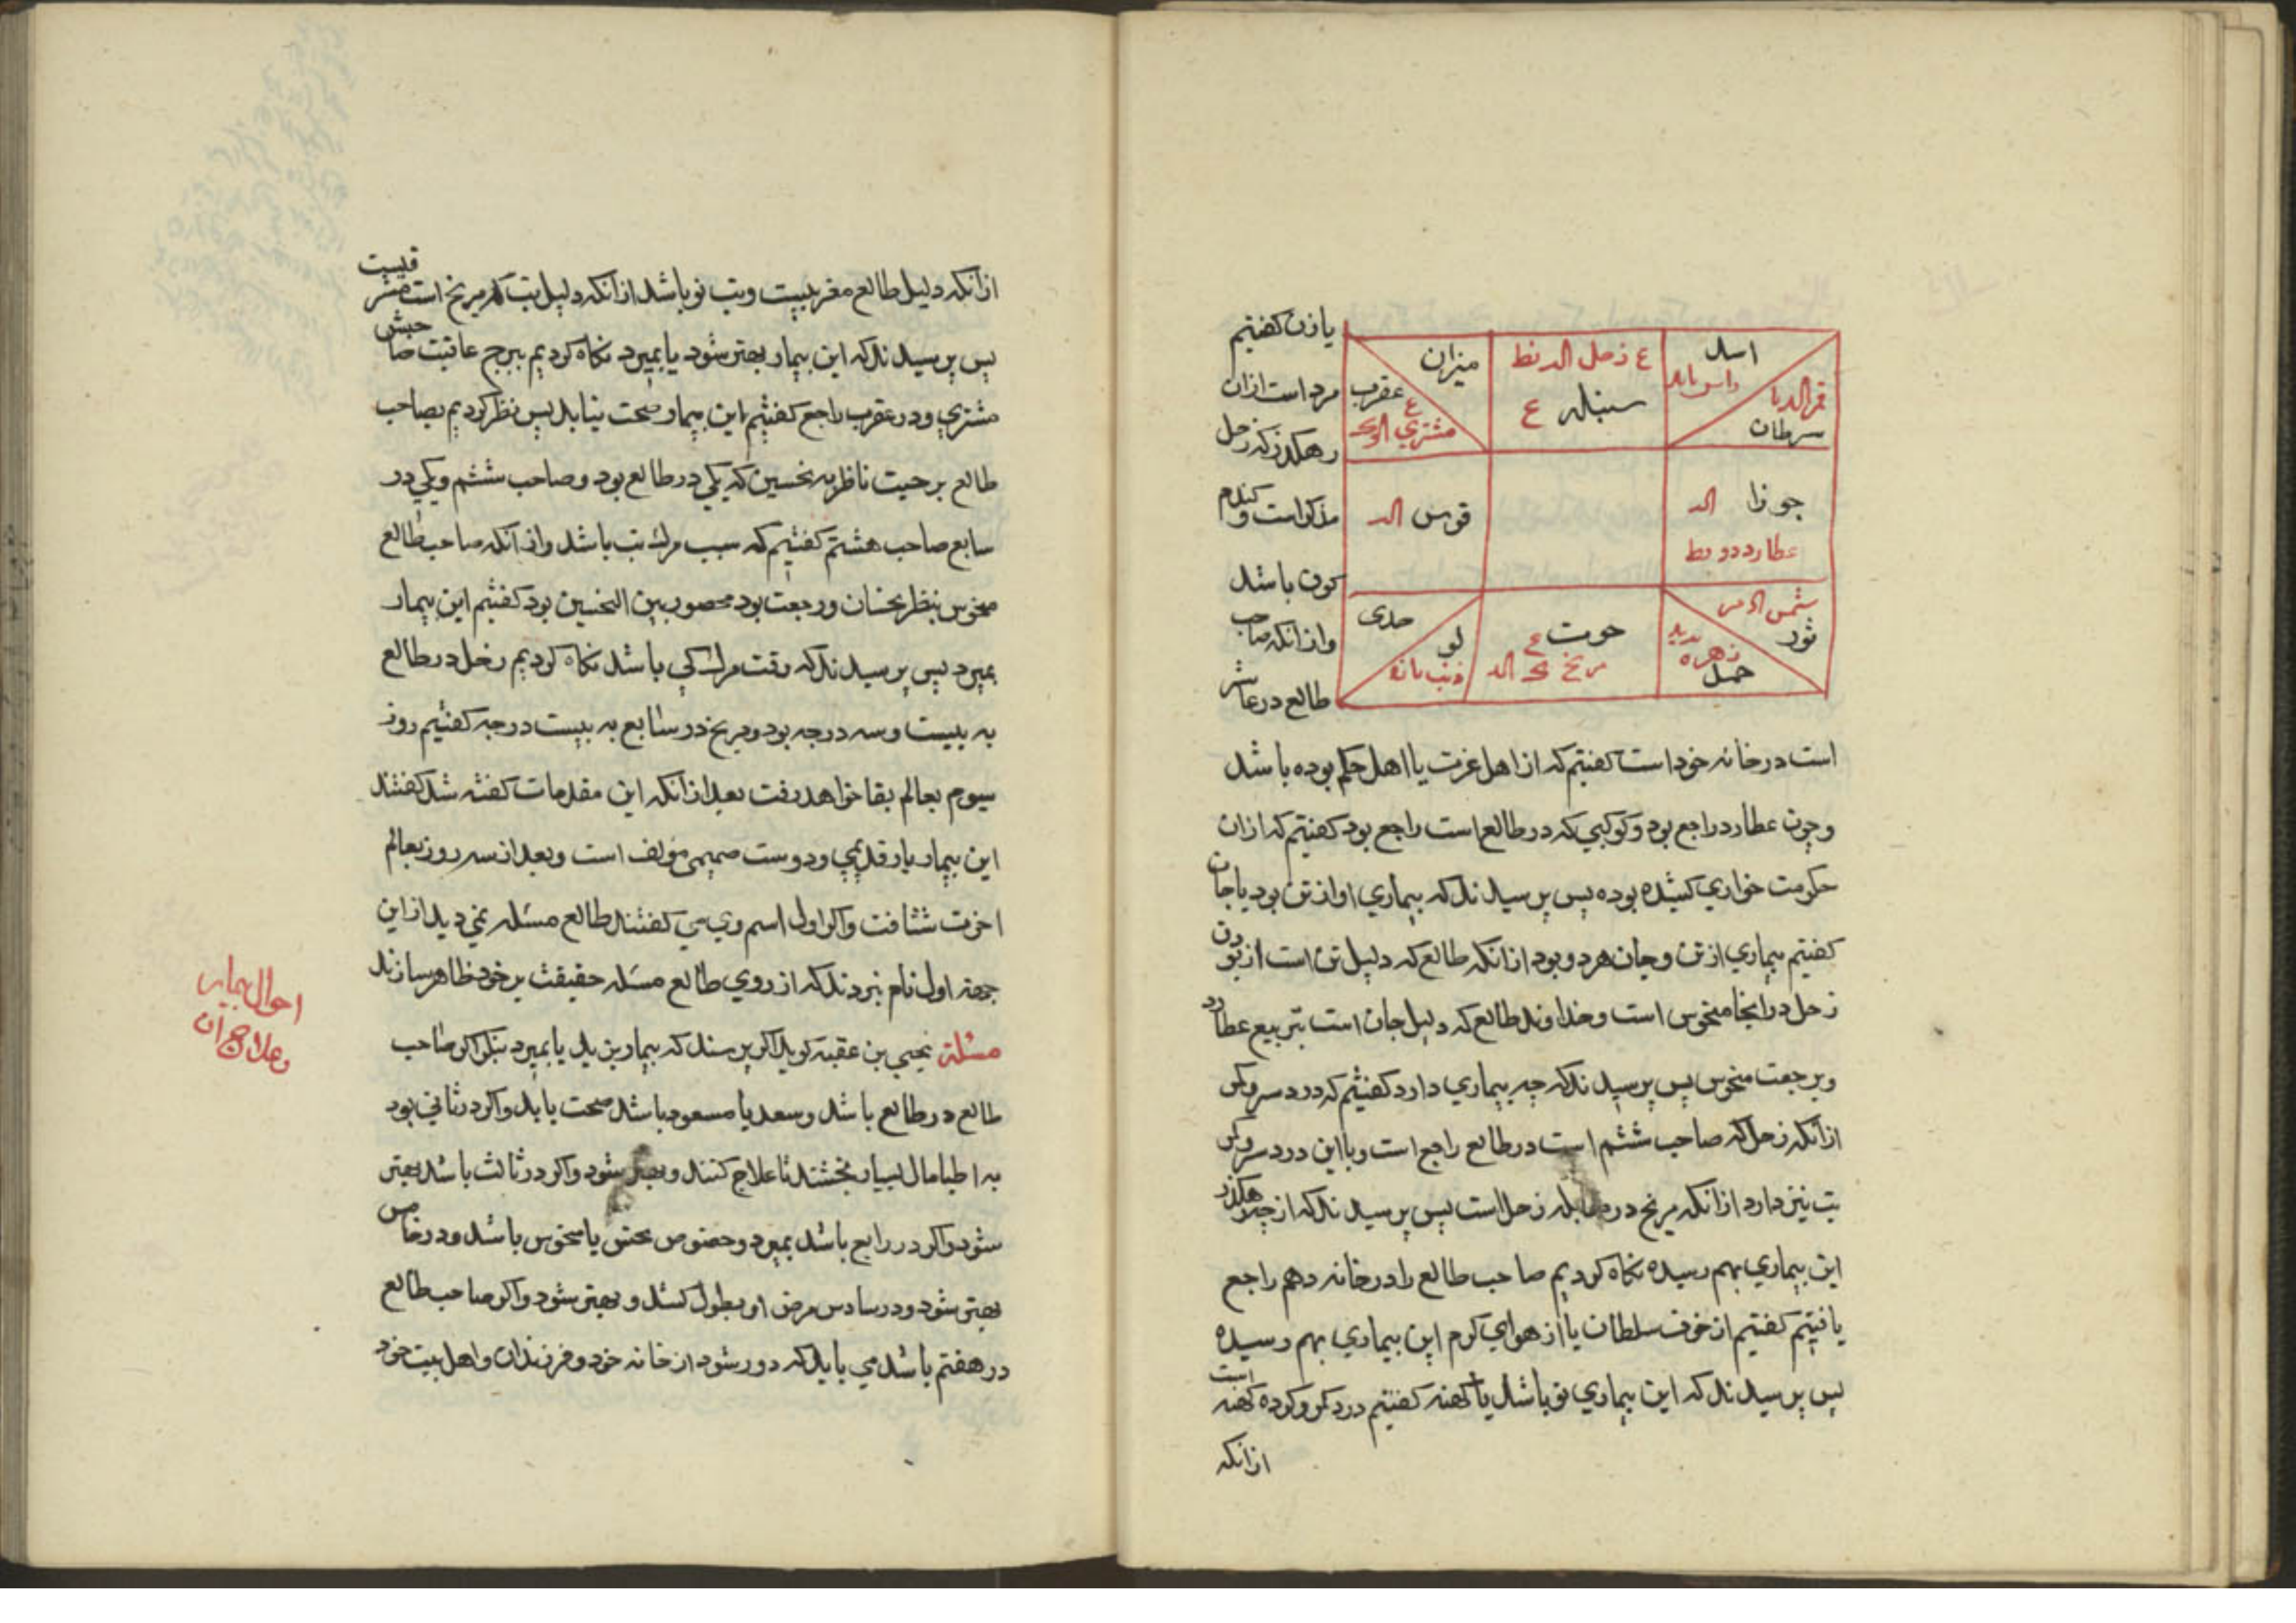 یا زن کفتیم
مرد است ازان
رهکذر که زحل
مذکر است و کندم
کون باشد
و از انکه صاحب
طالع در عاشر
اسد
میزان
ع زحل
سنبله ع
عقرب
ع
مشتری
سرطان
جوزا
عطارد
قوس
شمس
ثور
زهره
حمل
حوت ع
مریخ
جدی
لو
ذنب
است در خانه خود است کفتیم که از اهل عزت یا اهل حکم بوده باشد
و چون عطارد راجع بود و کوکبی که در طالع است راجع بود کفتیم که ازان
حکومت خواری کشیده بوده پس پرسیدند که بیماری او از تن بود یا جان
کفتیم بیماری از تن و جان هر دو بود از انکه طالع که دلیل تن است از بودن
زحل در انجا منحوس است و خداوند طالع که دلیل جان است بتربیع عطارد
و برجعت منحوس پس پرسیدند که چه بیماری دارد کفتیم که درد سر و کر
از انکه زحل که صاحب ششم است در طالع راجع است و با این درد سر و کر
تب نیز دارد از انکه مریخ در مقابله زحل است پس پرسیدند که از چه رهکذر
این بیماری بهم رسیده نکاه کردیم صاحب طالع را در خانه دهم راجع
یافتیم کفتیم از خوف سلطان یا از هوای کرم این بیماری بهم رسیده
پس پرسیدند که این بیماری نو باشد یا کهنه کفتیم درد کر و کرده کهنه است
از انکه
از انکه دلیل طالع مغربیست و تب نو باشد از انکه دلیل تب که مریخ است مشرقیست
پس پرسیدند که این بیمار بهتر شود یا بمیرد نکاه کردیم ببرج عاقبت صاحبش
مشتری و در عقرب راجع کفتیم این بیمار صحت نیابد پس نظر کردیم بصاحب
طالع برجیت ناظر به نحسین که یکی در طالع بود و صاحب ششم و یکی در
سابع صاحب هشتم کفتیم که سبب مرک تب باشد و از آنکه صاحب طالع
منحوس بنظر نحسان و رجعت بود محصور بین النحسین بود کفتیم این بیمار
بمیرد پس پرسیدند که وقت مرک کی باشد نکاه کردیم زحل در طالع
به بیست و سه درجه بود و مریخ در سابع به بیست درجه کفتیم روز
سیوم بعالم بقا خواهد رفت بعد از انکه این مقدمات کفته شد کفتند
این بیمار یار قدیمی و دوست صمیمی مؤلف است و بعد از سه روز بعالم
اخرت شتافت و اکر اول اسم وی می کفتند طالع مسئله نمی دید از این
جهته اول نام نبردند که از روی طالع مسئله حقیقت بر خود ظاهر سازند
مسئلة یحیی بن عقبه کوید اکر پرسند که بیمار بزید یا بمیرد بنکر اکر صاحب
طالع در طالع باشد و سعد یا مسعود باشد صحت یابد و اکر در ثانی بود
به اطبا مال بسیار بخشند تا علاج کنند و بهتر شود و اکر در ثالث باشد بهتر
شود و اکر در رابع باشد بمیرد و خصوص نحس یا منحوس باشد و در خامس
بهتر شود و در سادس مرض او بطول کشد و بهتر شود و اکر صاحب طالع
در هفتم باشد می باید که دور شود از خانه خود و فرزندان و اهل بیت خود
احوال بیمار
و علاج آن